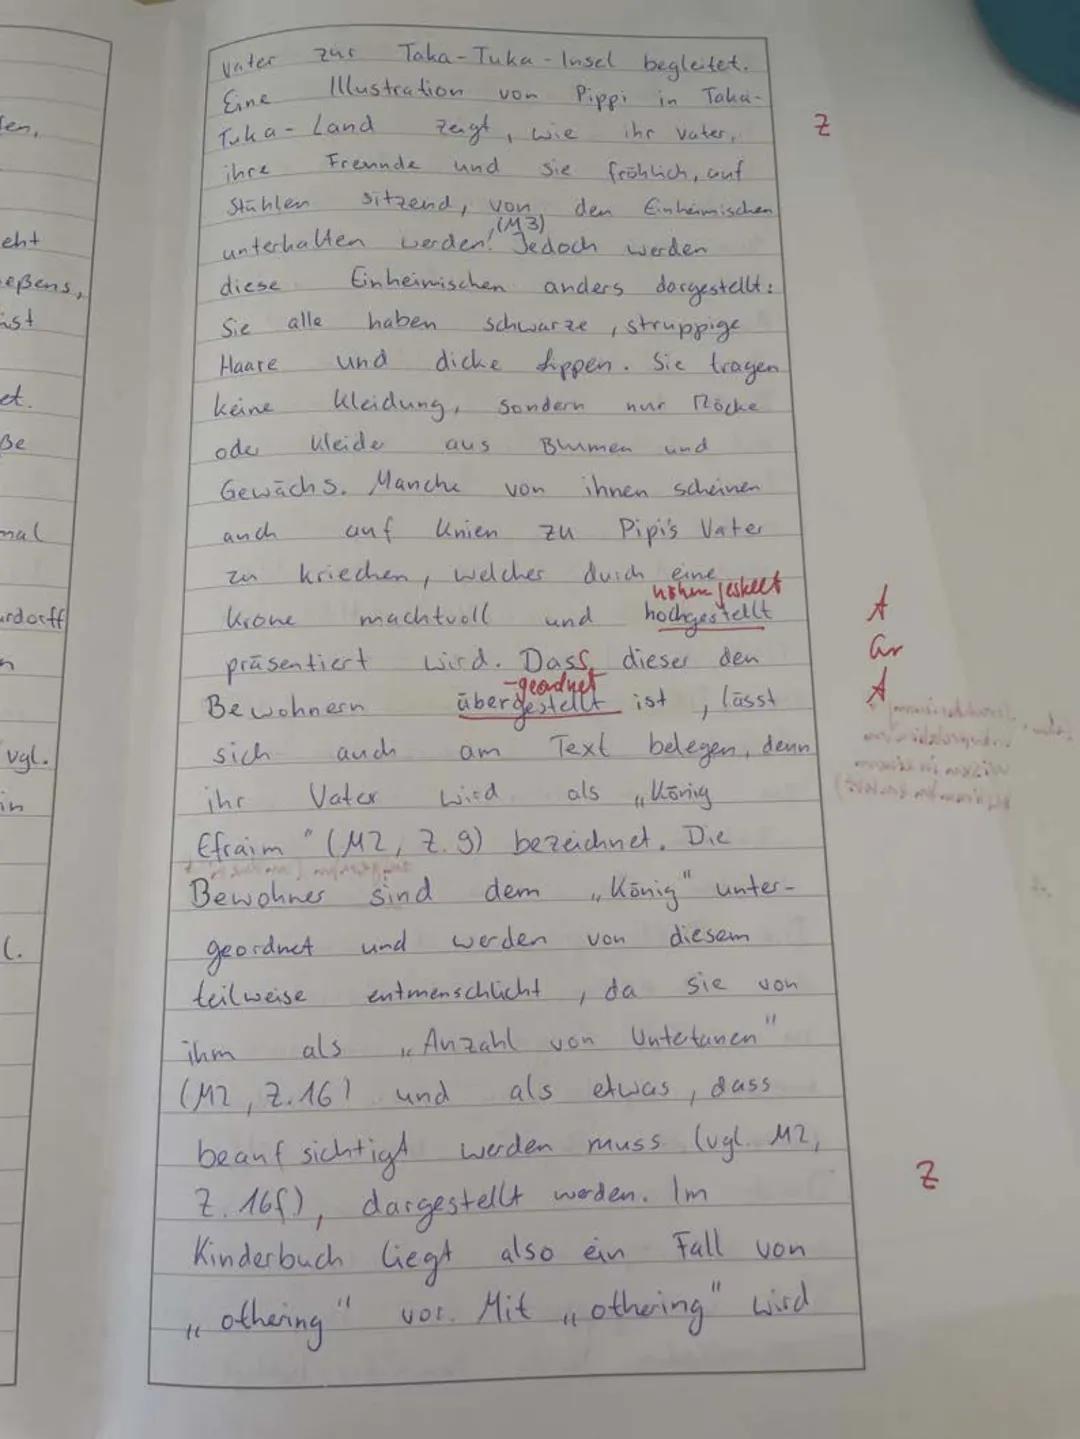 fen,
eht
eßens,
ist
et.
ße
mal
urdorff
n
vgl.
in
(.
Vater zur Taka-Tuka-Insel begleitet.
Eine Illustration von Pippi in Taka-
Tuka-Land zeigt, wie ihr Vater, Z
ihre Freunde und sie fröhlich, auf
Stühlen sitzend, von den Einheimischen
(M3)
unterhalten werden. Jedoch werden
diese Einheimischen anders dargestellt:
Sie alle haben schwarze, struppige
Haare und dicke Lippen. Sie tragen
keine Kleidung, sondern nur Röcke
oder Kleide aus Blumen und
Gewächs. Manche von ihnen scheinen
auch auf Knien zu Pipi's Vater
zu kriechen, welcher durch eine
Krone machtvoll und hochgestellt A
Gr
präsentiert wird. Dass dieser den
-geordnet A
Bewohnern übergestellt ist, lässt
sich auch am Text belegen, denn
ihr Vater wird als „König
Efraim" (M2, Z. 9) bezeichnet. Die
Bewohner sind dem „König" unter-
geordnet und werden von diesem
teilweise entmenschlicht, da sie von
ihm als „Anzahl von Untertanen"
(M2, Z. 16) und als etwas, dass
beaufsichtigt werden muss (vgl. M2,
Z. 16f), dargestellt werden. Im Z
Kinderbuch liegt also ein Fall von
„othering" vor. Mit „othering" wird